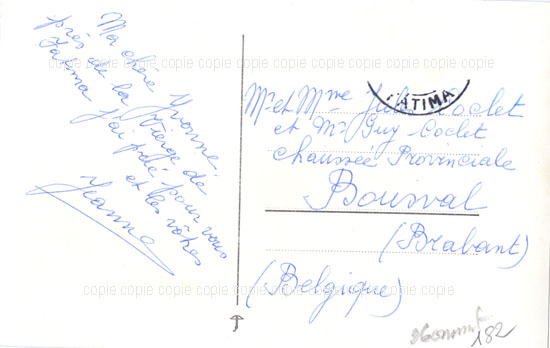 Ma chère Yvonne,
près de la Vierge de
Fatima j'ai prié pour vous
et les vôtres
Jeanne
FATIMA
Mr et Mme Jules Coclet
et Mr Guy Coclet
chaussée Provinciale
Bousval
(Brabant)
(Belgique)
182
copie copie copie copie copie copie copie copie copie copie copie copie
copie copie copie copie copie copie copie copie copie copie copie copie
copie copie copie copie copie copie copie copie copie copie copie copie